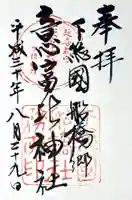 奉拝
下総國船橋郷
意富比神社
平成三十年八月二十九日